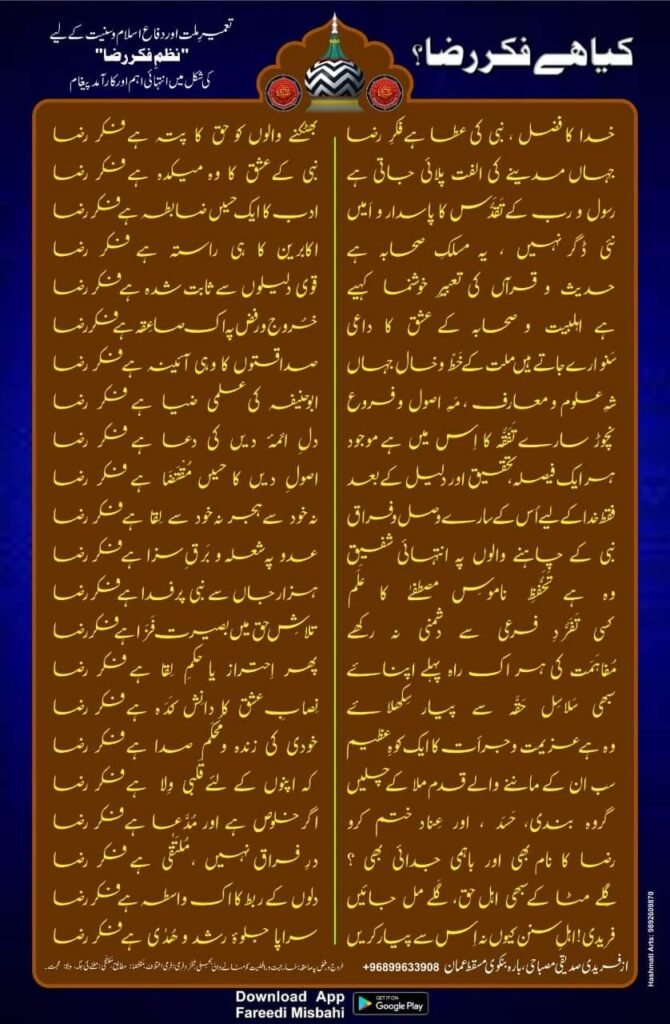 کیا ھے فکر رضا؟
تعمیرِ ملت اور دفاعِ اسلام و سنیت کے لیے
"نظم فکر رضا"
کی شکل میں انتہائی اہم اور کارآمد پیغام
خدا کا فضل ، نبی کی عطا ہے فکرِ رضا بھٹکنے والوں کو حق کا پتہ ہے فکر رضا
جہاں مدینے کی الفت پلائی جاتی ہے نبی کے عشق کا وہ میکدہ ہے فکر رضا
رسول و رب کے تقدُّس کا پاسدار و اَمیں ادب کا ایک حسیں ضابطہ ہے فکر رضا
نئی ڈگر نہیں ، یہ مسلکِ صحابہ ہے اکابرین کا ہی راستہ ہے فکر رضا
حدیث و قرآں کی تعبیرِ خوشنما کہیے قوی دلیلوں سے ثابت شدہ ہے فکر رضا
ہے اہلبیت و صحابہ کے عشق کا داعی خُروج و رفض پہ اک صاعقہ ہے فکر رضا
سنوارے جاتے ہیں ملت کے خَطّ و خال جہاں صداقتوں کا وہی آئینہ ہے فکر رضا
شہِ علوم و معارف ، مَہِ اصول و فروع ابوحنیفہ کی علمی ضیا ہے فکر رضا
نچوڑ سارے تَفَقُّہ کا اِس میں ہے موجود دلِ ائمۂ دیں کی دعا ہے فکر رضا
ہر ایک فیصلہ، تحقیق اور دلیل کے بعد اصولِ دیں کا حسیں مُقتَضا ہے فکر رضا
فقط خدا کے لیے اُس کے سارے وصل و فراق نہ خود سے ہجر نہ خود سے لِقا ہے فکر رضا
نبی کے چاہنے والوں پہ انتہائی شفیق عدو پہ شعلہ و بَرقِ سزا ہے فکر رضا
وہ ہے تَحَفُّظِ ناموسِ مصطفےٰ کا عَلَم ہزار جاں سے نبی پر فدا ہے فکر رضا
کسی تَفَرُّدِ فرعی سے دشمنی نہ رکھے تلاشِ حق میں بصیرت فَزا ہے فکر رضا
مُفاہَمَت کی ہر اک راہ پہلے اپنائے پھر اِحتراز یا حکمِ لِقا ہے فکر رضا
سبھی سَلاسِلِ حَقَّہ سے پیار سِکھلائے نِصابِ عشق کا دانش کَدَہ ہے فکر رضا
وہ ہے عزیمت و جرأت کا ایک کوہِ عظیم خودی کی زندہ و محکم صدا ہے فکر رضا
سب ان کے ماننے والے قدم ملا کے چلیں کہ اپنوں کے لئے قلبی وِلا ہے فکر رضا
گروہ بندی، حَسَد ، اور عِناد ختم کرو اگر خلوص ہے اور مُدَّعا ہے فکر رضا
رضا کا نام بھی اور باہمی جدائی بھی ؟ درِ فراق نہیں ، مُلتَقٰی ہے فکر رضا
گلے مٹا کے سبھی اہل حق، گلے مل جائیں دلوں کے ربط کا اک واسطہ ہے فکر رضا
فریدی! اہلِ سنن کیوں نہ اِس سے پیار کریں سراپا جلوۂ رشد و ھُدٰی ہے فکر رضا
از فریدی صدیقی مصباحی، بارہ بنکوی مسقط عمان +96899633908
Download App
Fareedi Misbahi
GET IT ON
Google Play
Hashmati Arts: 9892609870